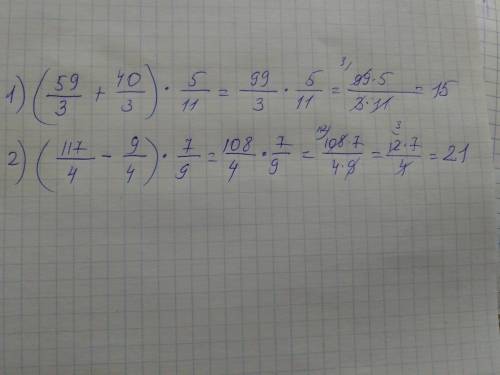 1) (59/3 + 40/3) · 5/11 = 99/3 · 5/11 = 3) 99·5/3·11 = 15
2) (117/4 - 9/4) · 7/9 = 108/4 · 7/9 = 12) 108·7/4·9 = 3 12·7/4 = 21